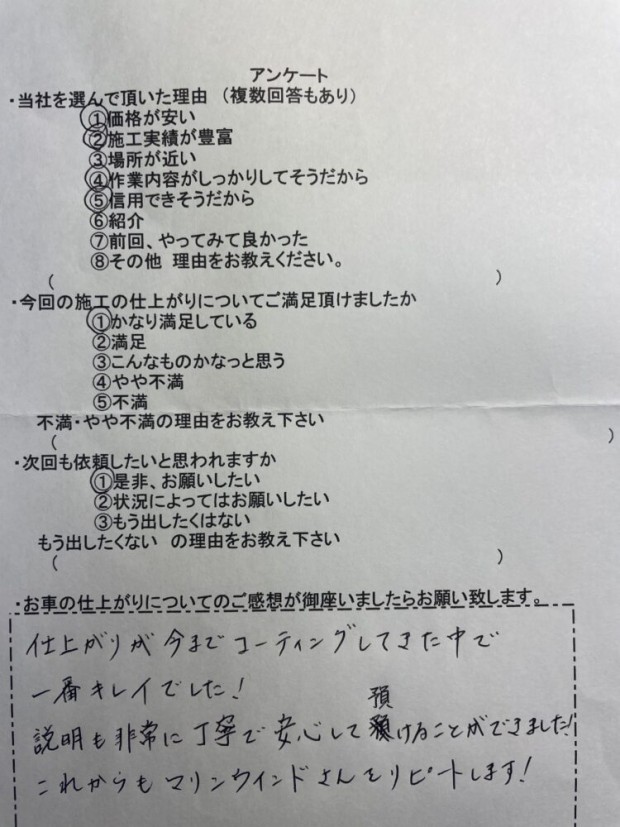 アンケート
・当社を選んで頂いた理由　（複数回答もあり）
①価格が安い
②施工実績が豊富
③場所が近い
④作業内容がしっかりしてそうだから
⑤信用できそうだから
⑥紹介
⑦前回、やってみて良かった
⑧その他　理由をお教えください。
（　　　　　　　　　　）
・今回の施工の仕上がりについてご満足頂けましたか
①かなり満足している
②満足
③こんなものかなっと思う
④やや不満
⑤不満
不満・やや不満の理由をお教え下さい
（　　　　　　　　　　）
・次回も依頼したいと思われますか
①是非、お願いしたい
②状況によってはお願いしたい
③もう出したくはない
もう出したくない　の理由をお教え下さい
（　　　　　　　　　　）
・お車の仕上がりについてのご感想が御座いましたらお願い致します。
仕上がりが今までコーティングしてきた中で
一番キレイでした！
説明も非常に丁寧で安心して預けることができました！
これからもマリンウインドさんをリピートします！